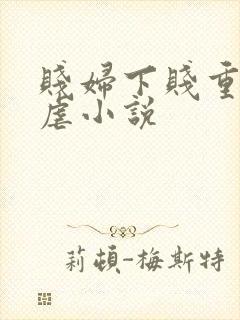 賤婦下賤重
虐小說
莉頓-梅斯特